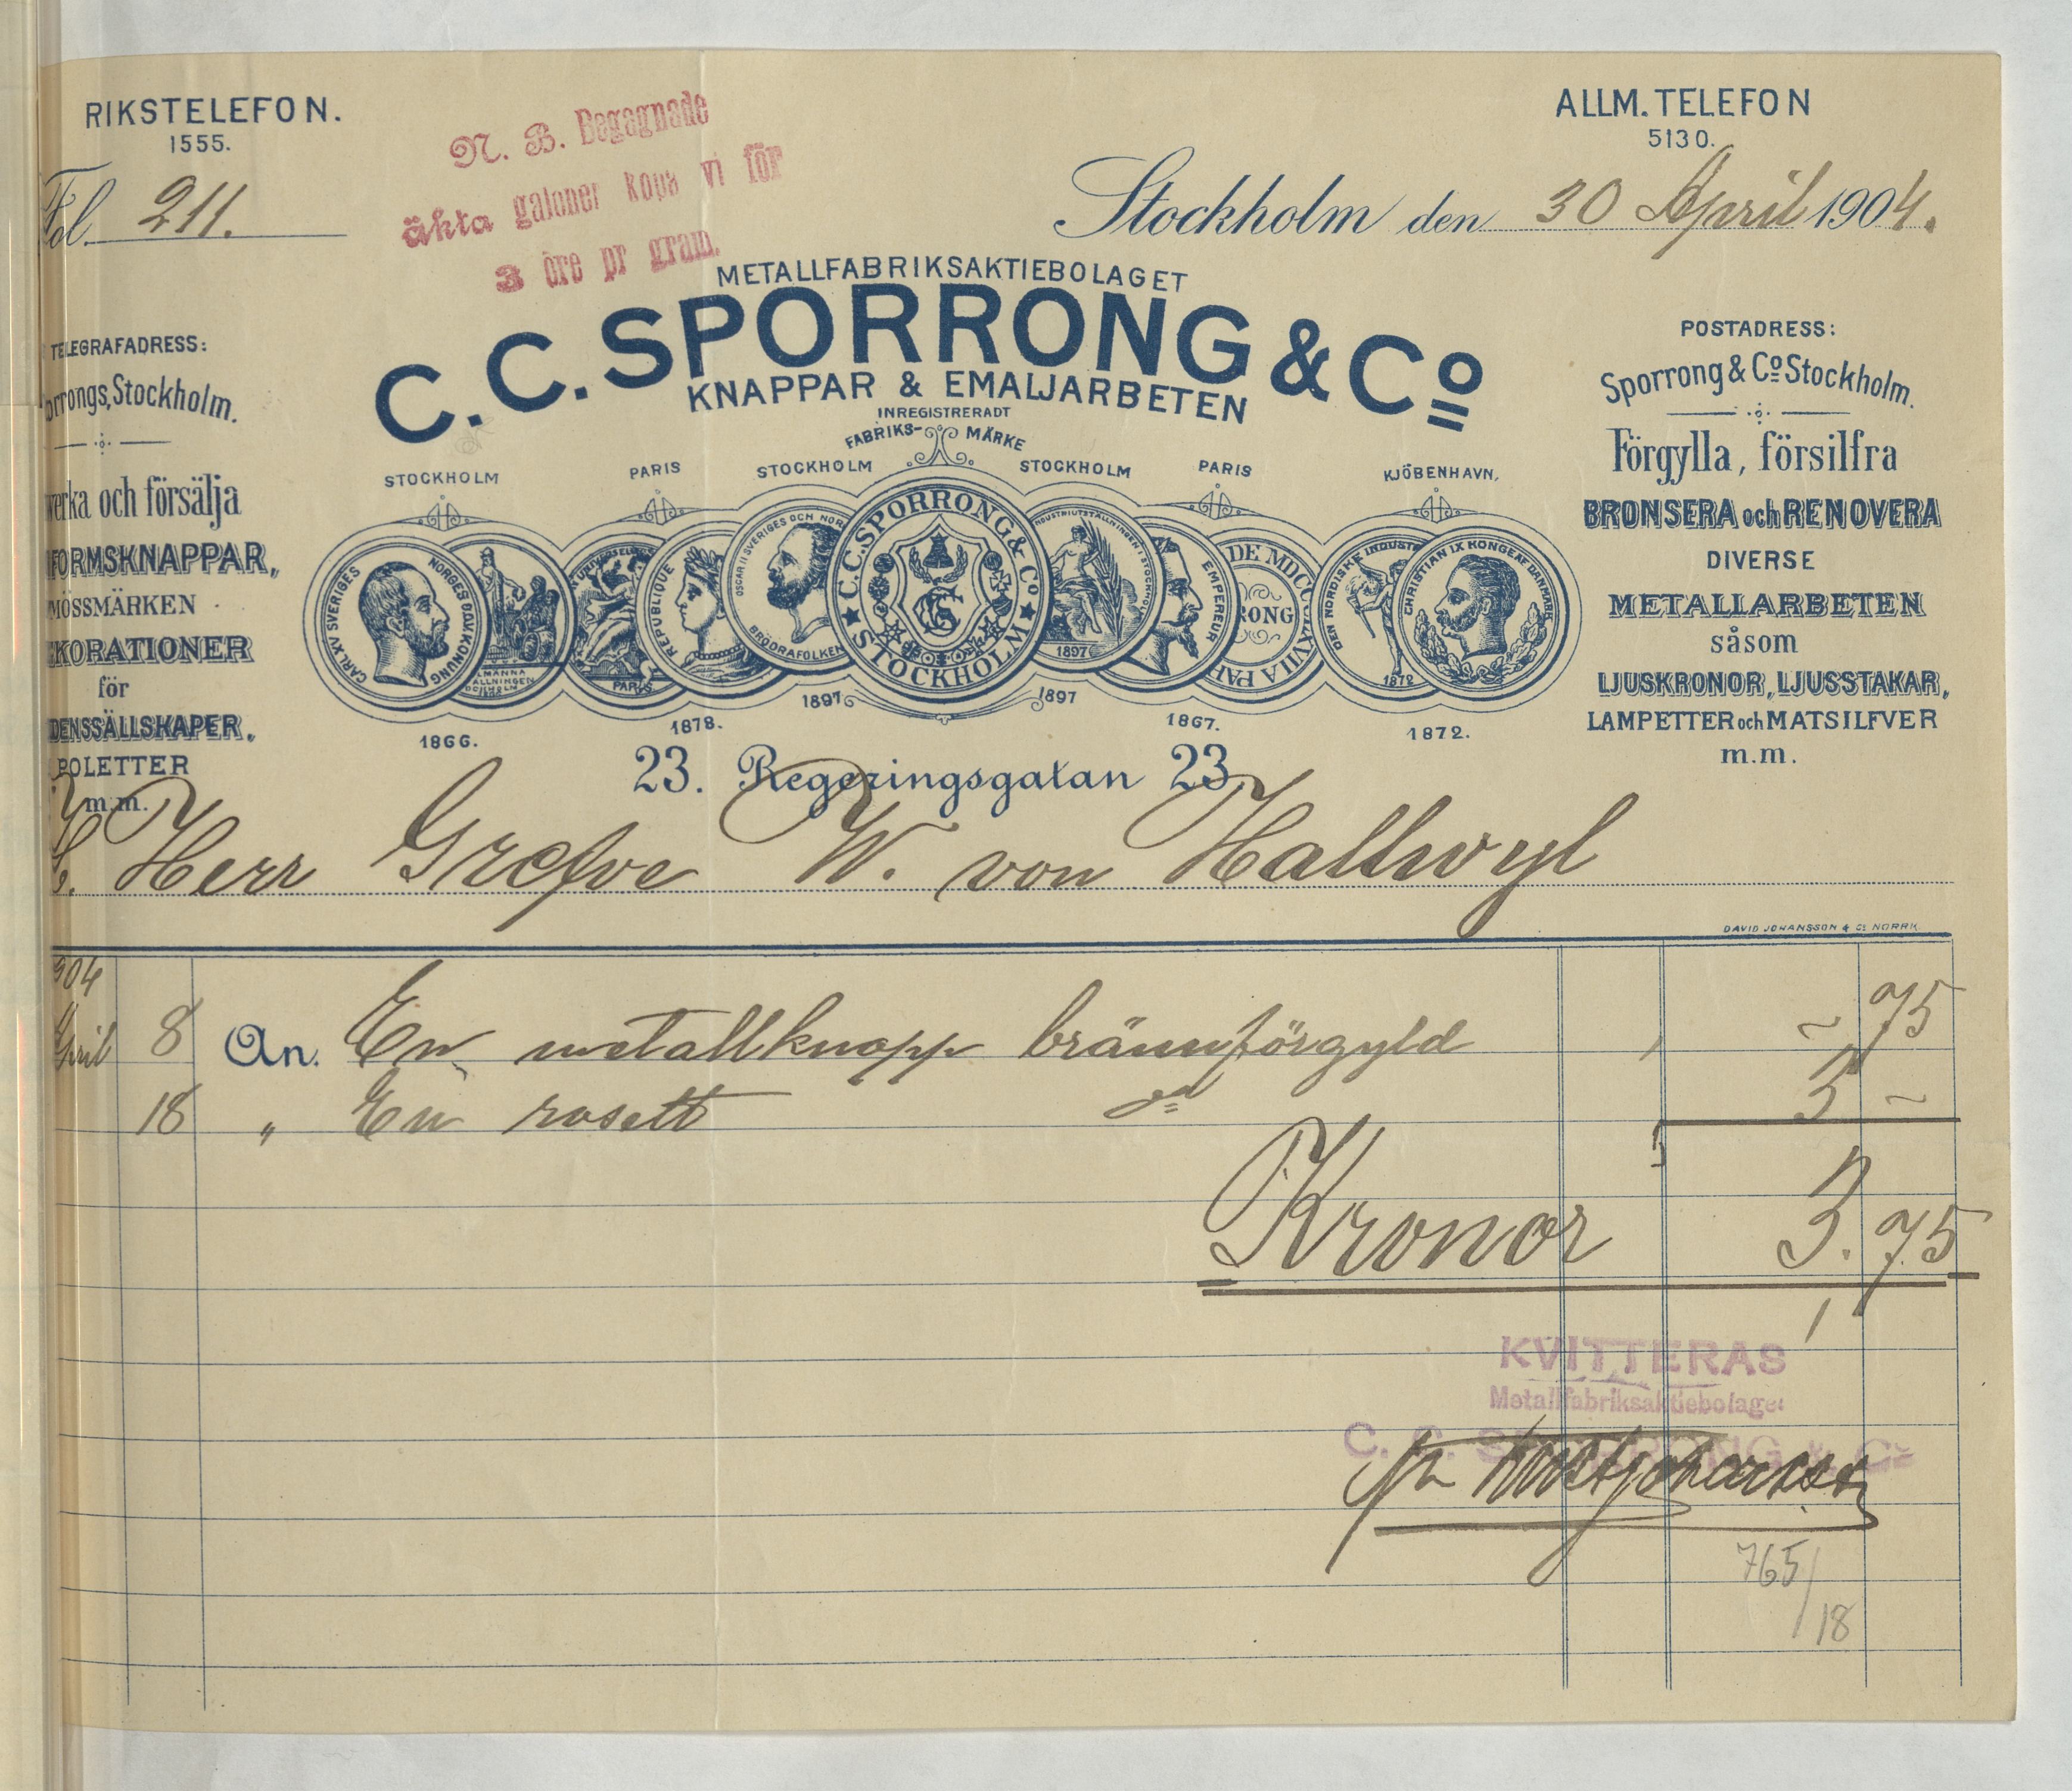 RIKSTELEFON.
1555.
Fol. 211.
N. B. Begagnade
äkta galoner köpa vi för
3 öre pr gram.
ALLM. TELEFON
5130.
Stockholm den 30 April 1904.
METALLFABRIKSAKTIEBOLAGET
C. C. SPORRONG & Co
KNAPPAR & EMALJARBETEN
INREGISTRERADT
FABRIKS- MÄRKE
TELEGRAFADRESS:
orrongs, Stockholm.
verka och försälja
FORMSKNAPPAR,
MÖSSMÄRKEN
KORATIONER
för
DENSSÄLLSKAPER,
POLETTER
m.m.
POSTADRESS:
Sporrong & Co Stockholm.
Förgylla, försilfra
BRONSERA och RENOVERA
DIVERSE
METALLARBETEN
såsom
LJUSKRONOR, LJUSSTAKAR,
LAMPETTER och MATSILFVER
m.m.
STOCKHOLM PARIS STOCKHOLM STOCKHOLM PARIS KJÖBENHAVN.
CARL XV SVERIGES NORGES GÖTH. V. KONUNG
PARIS
REPUBLIQUE
OSCAR II SVERIGES OCH NOR
BRÖDRAFOLKEN
C.C. SPORRONG & Co
STOCKHOLM
INDUSTRIUTSTÄLLNINGEN I STOCKHOLM
1897
EMPEREUR
DE MDCCCLXVII A PAR
RONG
DEN NORDISKE INDUSTRI
1872
CHRISTIAN IX KONGE AF DANMARK
1866. 1878. 1897 1897 1867. 1872.
23. Regeringsgatan 23
Herr Grefve W. von Hallwyl
DAVID JOHANSSON & Co NORRK.
904
April 8 An. En metallknapp brännförgyld ~ 75
18 " En rosett d= 3 ~
Kronor 3.75
KVITTERAS
Metallfabriksaktiebolaget
C. C. SPORRONG & Co
765/18